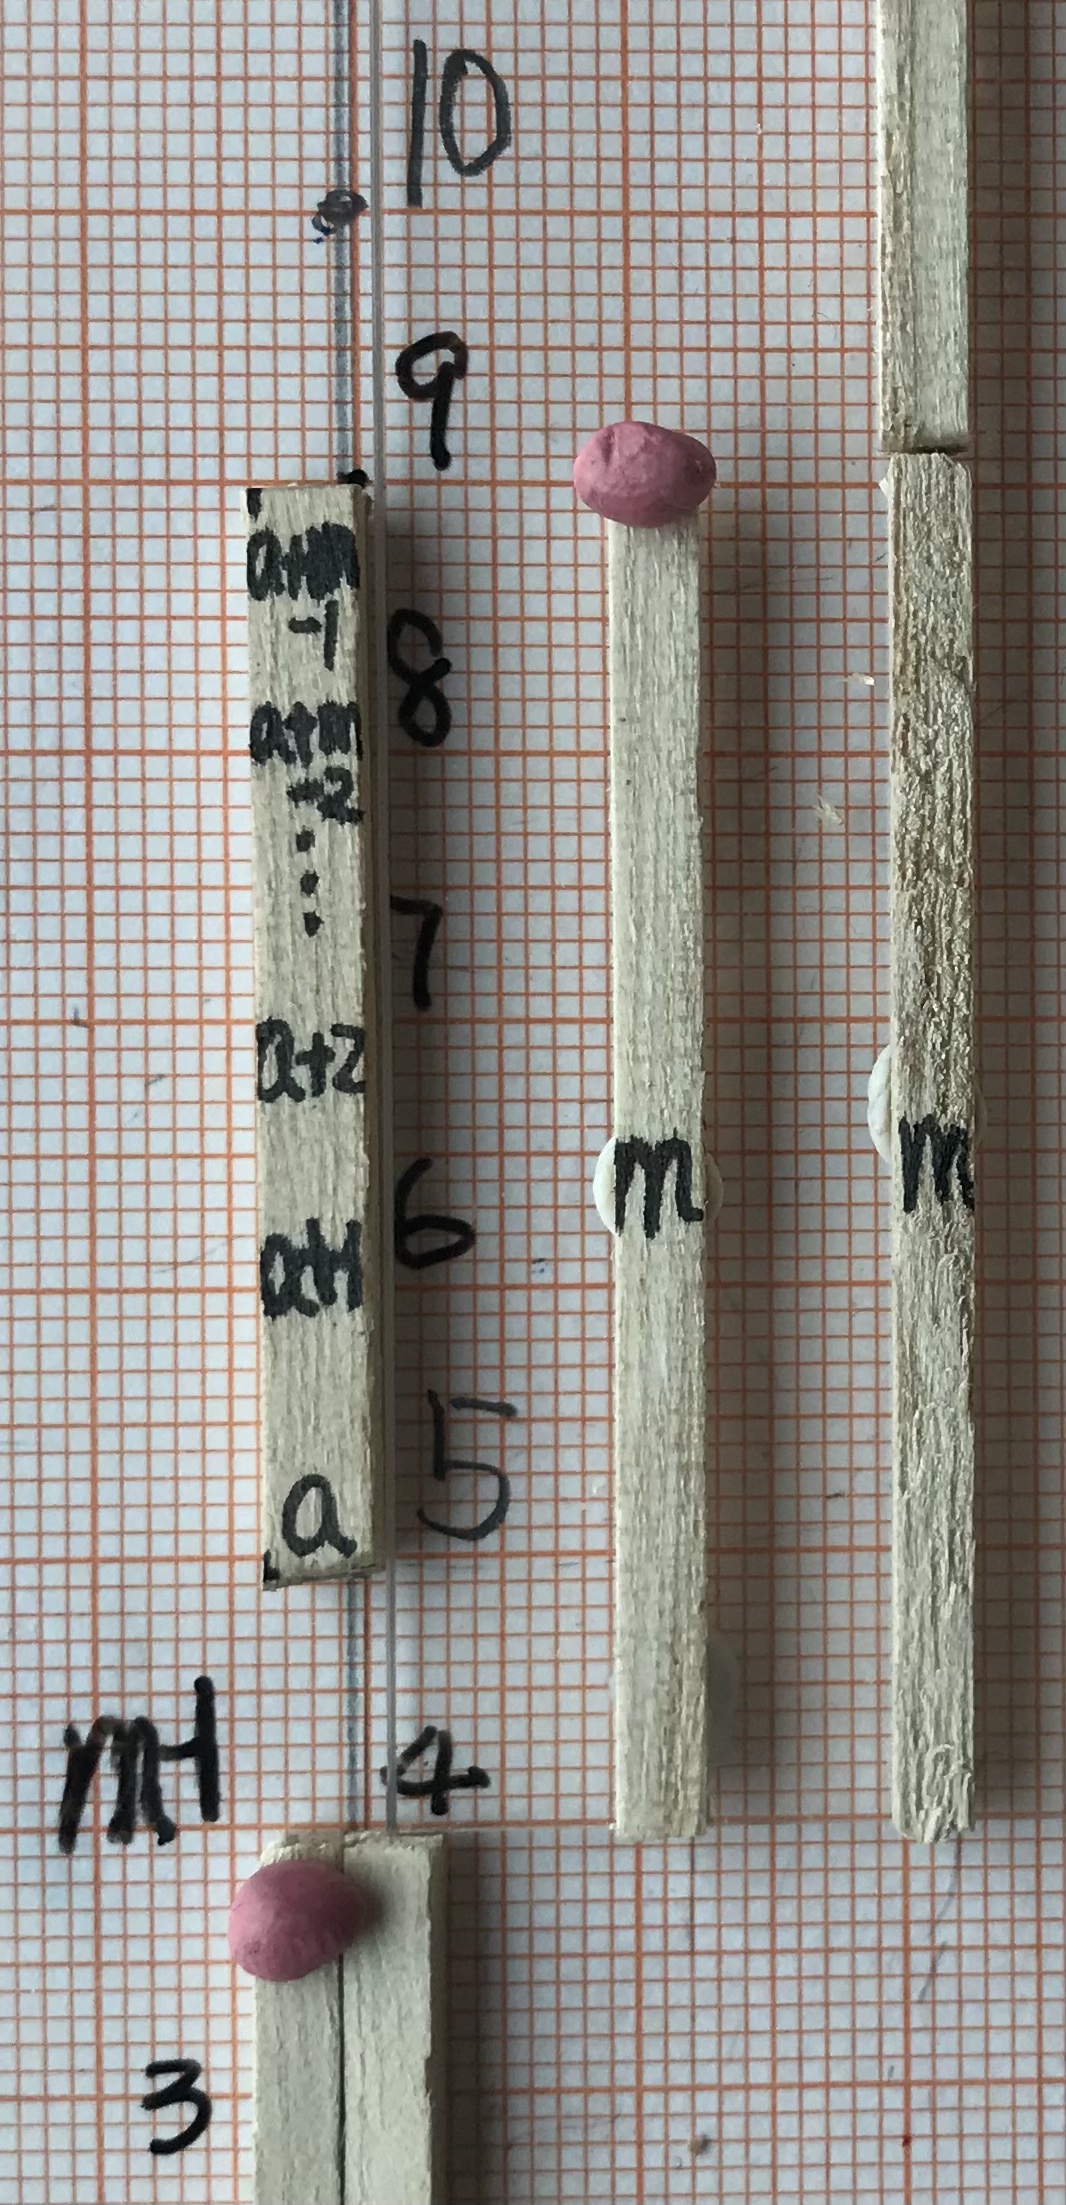 10
9
a+m
-1
8
a+m
-2
7
a+2
m
m
6
a+1
5
a
m-1
4
3